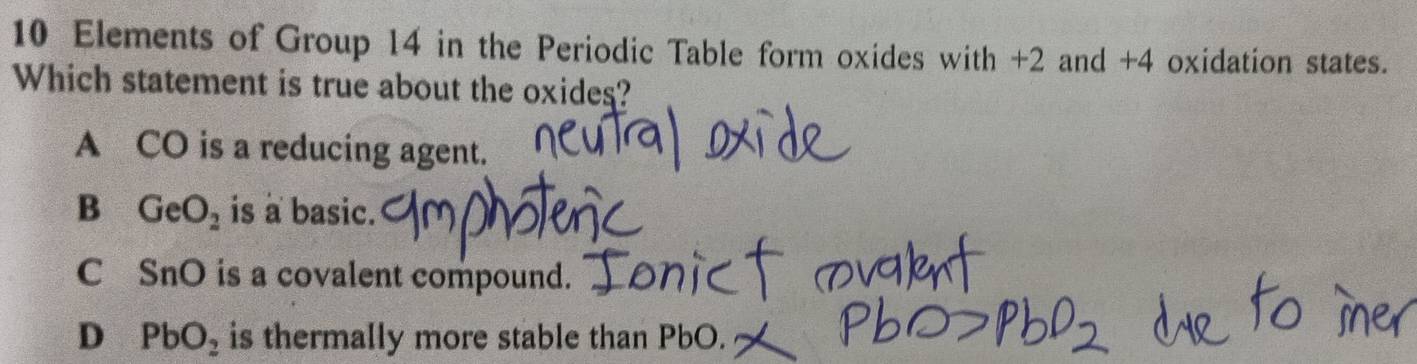 10 Elements of Group 14 in the Periodic Table form oxides with +2 and +4 oxidation states.
Which statement is true about the oxides?
A CO is a reducing agent. neutral oxide
B GeO₂ is a basic. amphoteric
C SnO is a covalent compound. Ionic + covalent
D PbO₂ is thermally more stable than PbO. ✗ PbO>PbO₂ due to iner